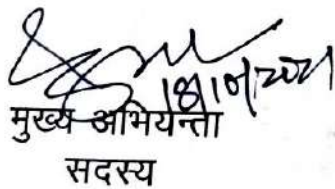 18/10/2021
मुख्य अभियन्ता
सदस्य